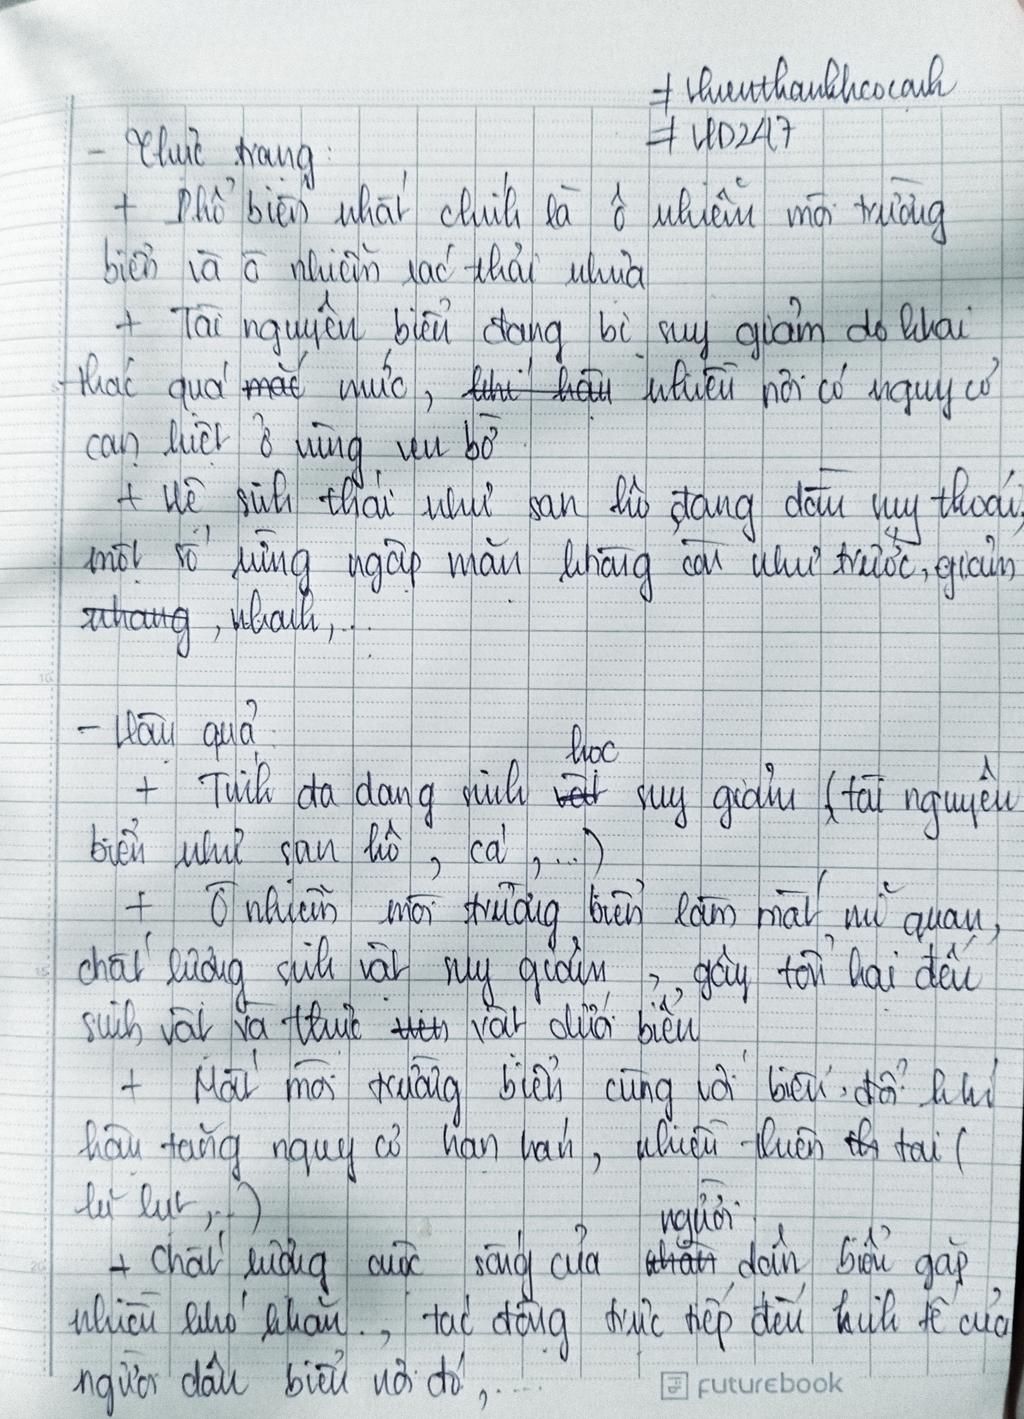 #thienthanhhcocanh
#HD247
- Thực trạng:
+ Phổ biến nhất chính là ô nhiễm môi trường
biển và ô nhiễm rác thải nhựa
+ Tài nguyên biển đang bị suy giảm do khai
thác quá mức, nhiều nơi có nguy cơ
cạn kiệt ở vùng ven bờ
+ Hệ sinh thái như san hô đang dần suy thoái,
một số rừng ngập mặn không còn như trước, giảm
nhanh,...
- Hậu quả:
+ Tính đa dạng sinh học suy giảm (tài nguyên
biển như san hô, cá,...)
+ Ô nhiễm môi trường biển làm mất mĩ quan,
chất lượng sinh vật suy giảm, gây tổn hại đến
sinh vật và thực vật dưới biển
+ Mất môi trường biển cùng với biến đổi khí
hậu tăng nguy cơ hạn hán, nhiều thiên tai (
lũ lụt,...)
+ Chất lượng cuộc sống của người dân biển gặp
nhiều khó khăn., tác động trực tiếp đến kinh tế của
người dân biển nơi đó,....
FUTUREBOOK